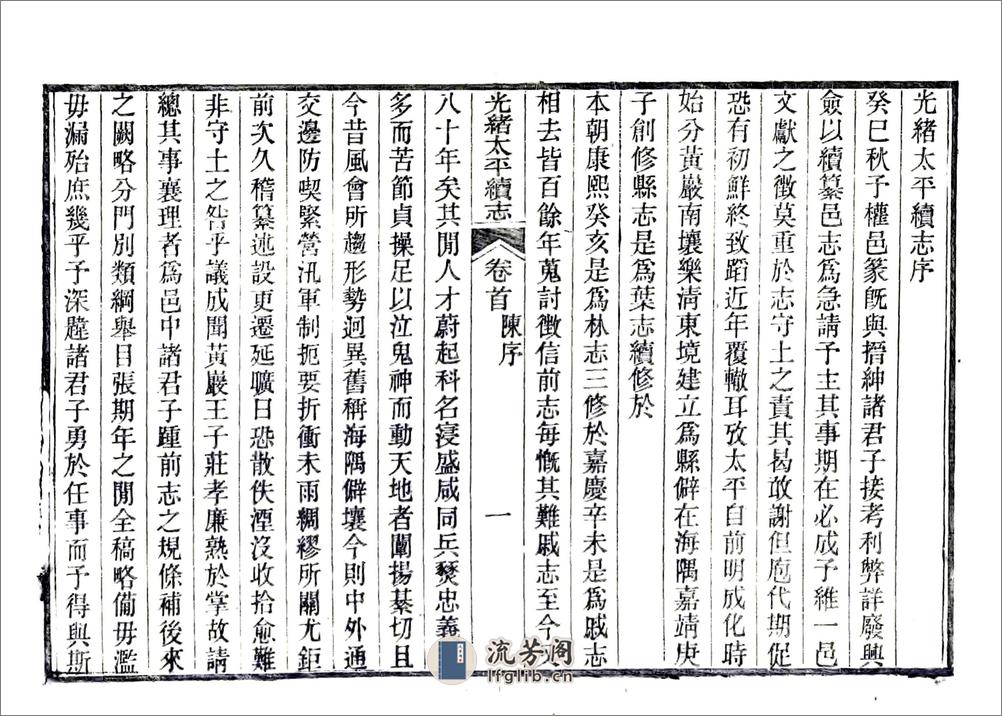 光緒太平續志序
癸巳秋予權邑篆旣與搢紳諸君子接考利弊詳廢興
僉以續纂邑志爲急請予主其事期在必成予維一邑
文獻之徵莫重於志守土之責其曷敢謝但庖代期促
恐有初鮮終致蹈近年覆轍耳攷太平自前明成化時
始分黃巖南壤樂淸東境建立爲縣僻在海隅嘉靖庚
子創修縣志是爲葉志續修於
本朝康熙癸亥是爲林志三修於嘉慶辛未是爲戚志
相去皆百餘年蒐討徵信前志每慨其難戚志至今
光緒太平續志 卷首 陳序 一
八十年矣其閒人才蔚起科名寖盛咸同兵燹忠義
多而苦節貞操足以泣鬼神而動天地者闡揚綦切且
今昔風會所趨形勢迥異舊稱海隅僻壤今則中外通
交邊防喫緊營汛軍制扼要折衝未雨綢繆所關尤鉅
前次久稽纂述設更遷延曠日恐散佚湮沒收拾愈難
非守土之咎乎議成聞黃巖王子莊孝廉熟於掌故請
總其事襄理者爲邑中諸君子踵前志之規條補後來
之闕略分門別類綱舉目張期年之閒全稿略備毋濫
毋漏殆庶幾乎予深韙諸君子勇於任事而予得與斯
流芳阁
lfglib.cn